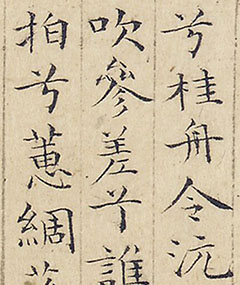 兮桂舟令沅
吹參差兮誰
拍兮蕙綢